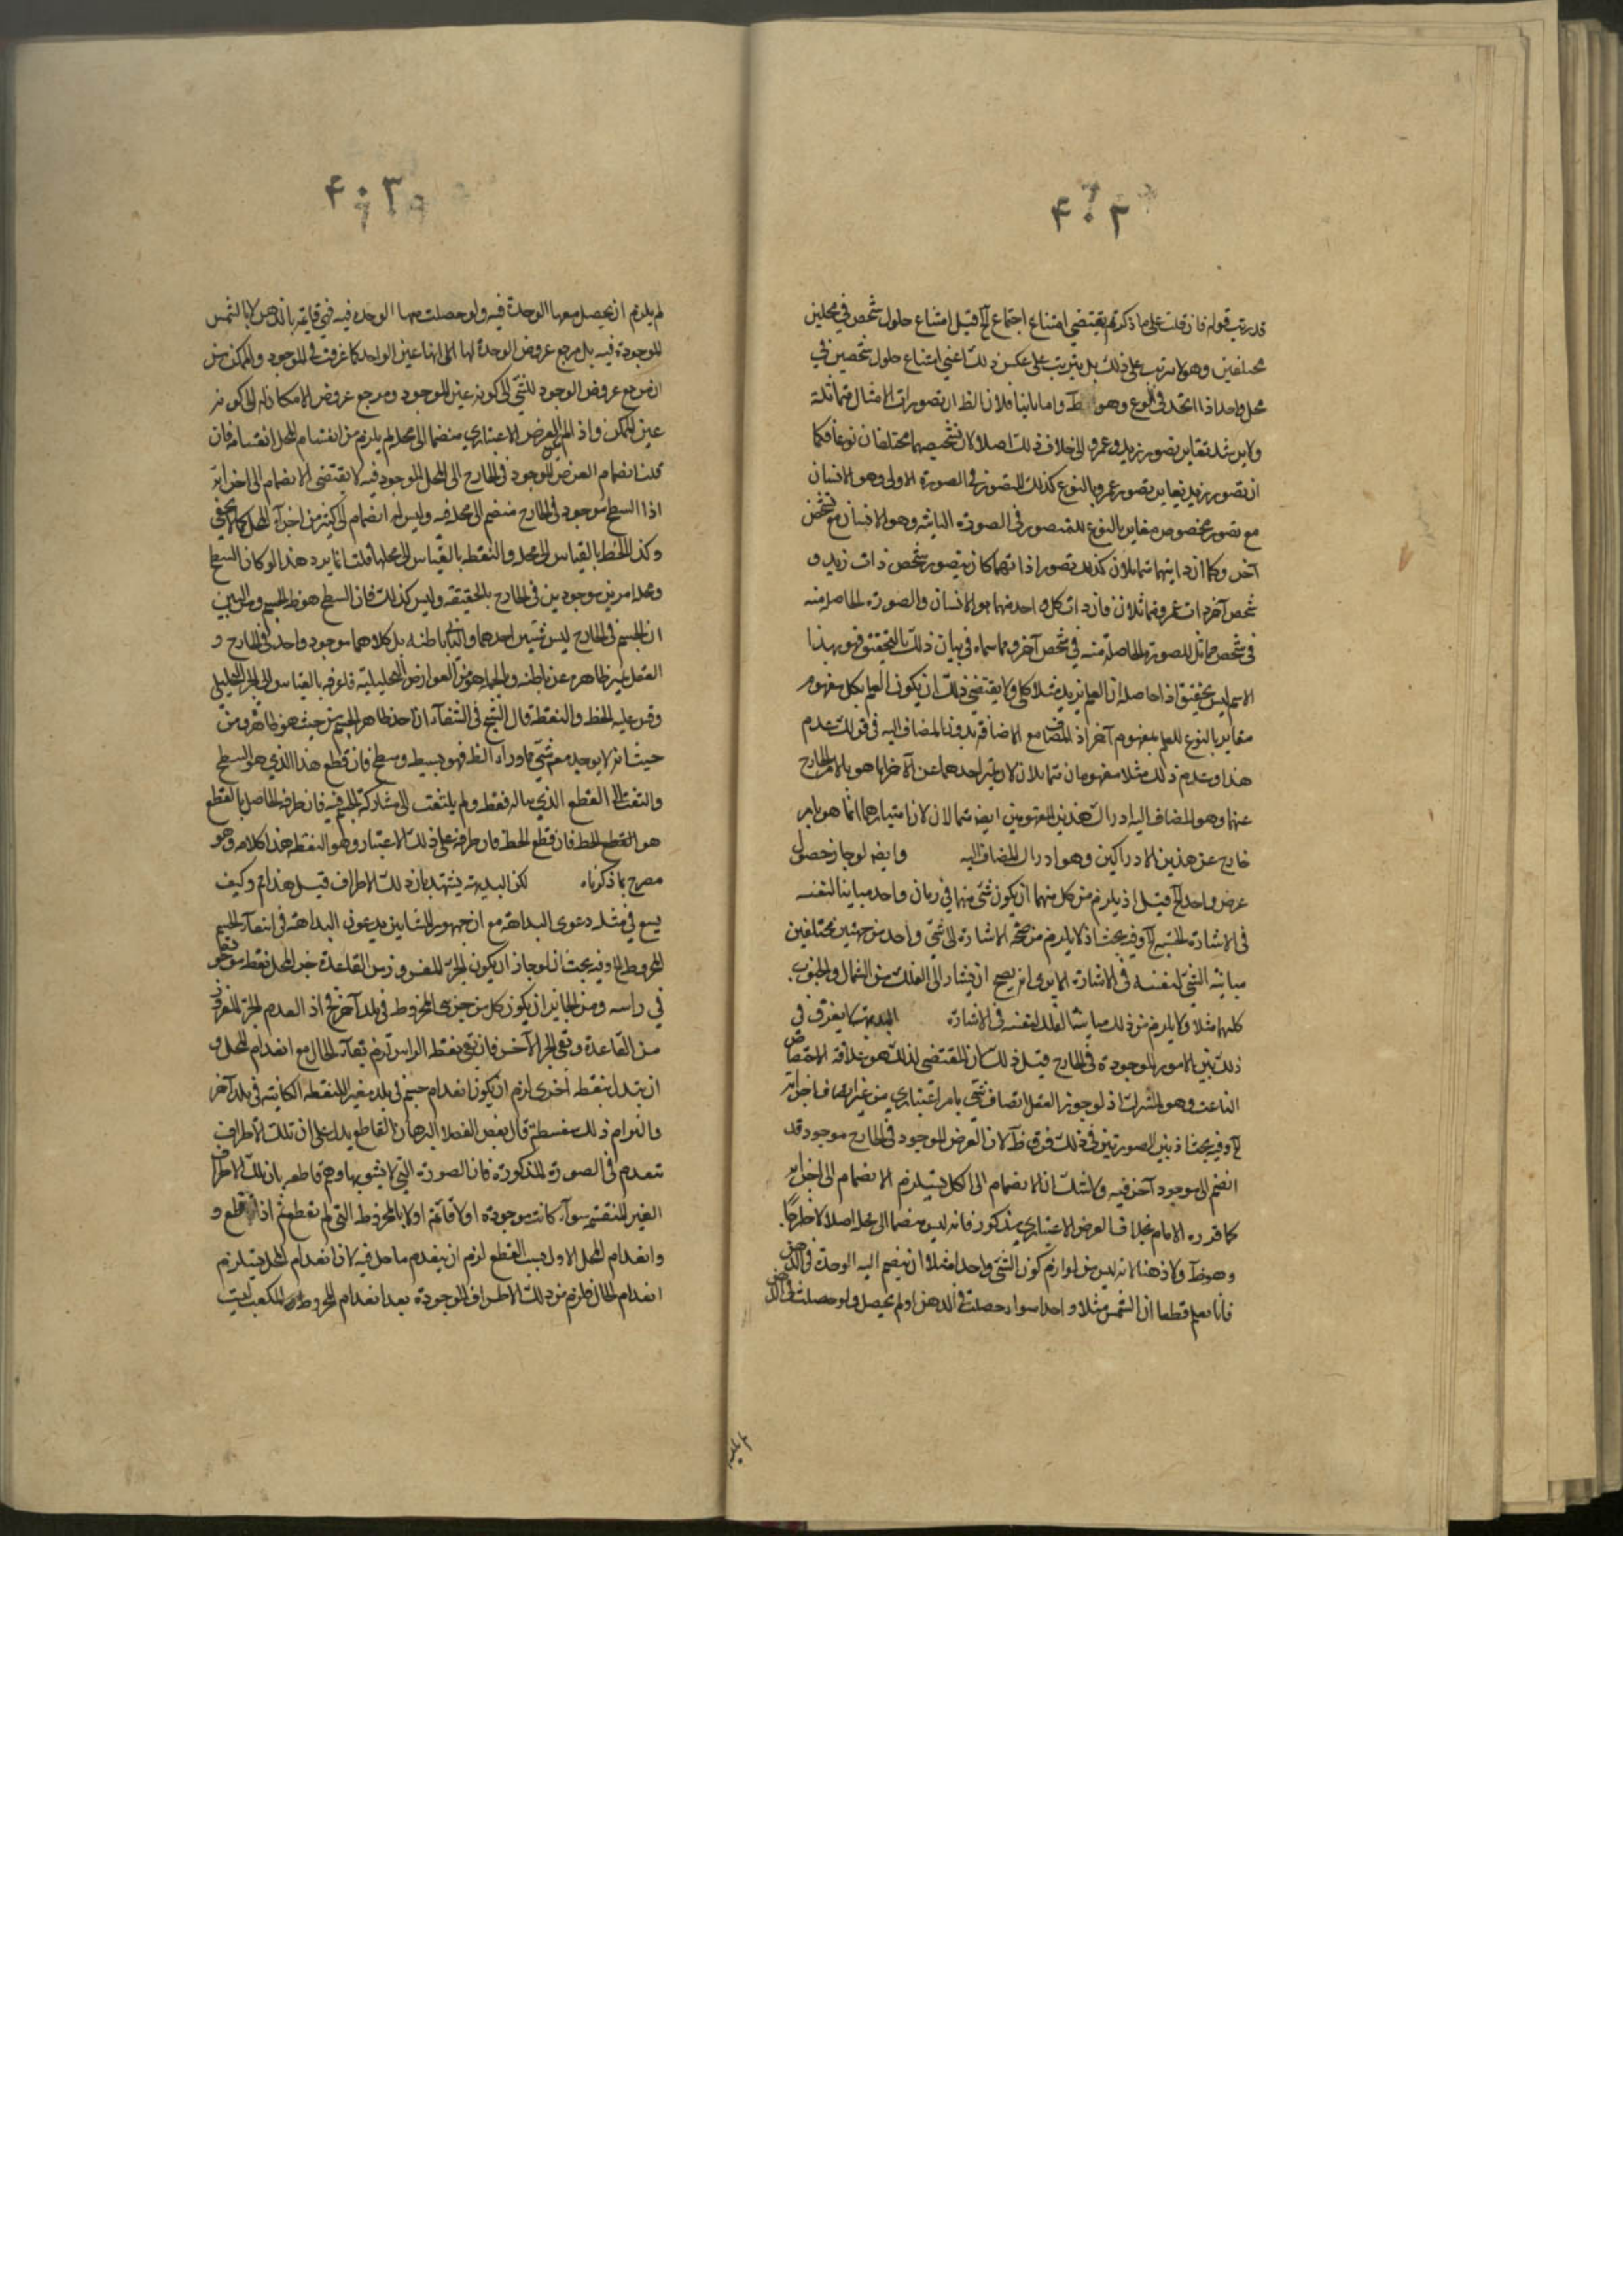 ۴۰۲
قد رتب قوله فان قلت على ما ذكرتم يقتضي امتناع اجتماع الخ قيل امتناع حلول شخص في محلين
مختلفين وهو لا يترتب على ذلك بل يترتب على عكس ذلك اعني امتناع حلول شخصين في
محل واحد اذا اتحد في النوع وهو ظ واما ثانيا فلان الظ ان تصورات الامثال متماثلة
ولا يرشد تغاير تصور زيد وعمرو الى خلاف ذلك اصلا ولان تشخيصهما مختلفان نوعا فكما
ان تصور زيد يغاير تصور عمرو بالنوع كذلك المتصور في الصورة الاولى وهو الانسان
مع تصور مخصوص مغاير بالنوع للمتصور في الصورة الثانية وهو الانسان مع تشخص
آخر وكما ان ذاتيهما متماثلان كذلك تصور اذاتهما كان يتصور شخص ذات زيد و
شخص آخر ذات عمرو متماثلان فان ذات كل واحد منهما هو الانسان والصورة الحاصلة منه
في شخص مماثل للصورة الحاصلة منه في شخص آخر وما سماه في بيان ذلك بالتحقيق فهو بهذا
الاسم ليس بحقيق اذ حاصله ان العلم بزيد مثلا كلي ولا يقتضي ذلك ان يكون العلم بكل مفهوم
مغاير بالنوع للعلم بمفهوم آخر اذ المضا مع الاضافة بدون المضاف اليه في قولك عدم
هذا وعدم ذلك مثلا مفهومان متماثلان لان تمايز احدهما عن الآخر انما هو بالامر الخارج
عنهما وهو المضاف اليه ادراك هذين المفهومين ايضا متماثلان لان امتيازهما انما هو بامر
خارج عن هذين الادراكين وهو ادراك المضاف اليه وايضا لو جاز حصول
عرض واحد الخ قيل اذ يلزم من كل منهما ان يكون شئ منها في زمان واحد مباينا لنفسه
في الاشارة الحسية الخ وفيه بحث اذ لا يلزم من صحة الاشارة الى شئ واحد من جهتين مختلفتين
مباينة الشئ لنفسه في الاشارة الا يرى انه يصح ان يشار الى الفلك من الشمال والجنوب
كليهما مثلا ولا يلزم من ذلك مباينة الفلك لنفسه في الاشارة البديهة لا يفرق في
ذلك بين الامور الموجودة في الخارج قيل ذلك لان المقتضي لذلك هو علاقة الاختصاص
الناعت وهو المشترك اذ لو جوز العقل اتصاف شئ بامر اعتباري من غير اتصاف اجزائه
الخ وفيه بحث اذ بين الصورتين في ذلك فرق ظ لان العرض الموجود في الخارج موجود قد
انضم الى موجود آخر فيه ولا شك ان الانضمام الى الكل يستلزم الانضمام الى اجزائه
كما قرره الامام بخلاف العرض الاعتباري مذكور فانه ليس منضما الى محله اصلا لا خارجا
وهو ظ ولا ذهنا لانه ليس من لوازم كون الشئ واحدا مثلا ان ينضم اليه الوحدة في الذهن
فانا نعلم قطعا ان الشمس مثلا واحد سواء حصلت في الذهن او لم يحصل ولو حصلت في الذهن
لم يلزم
۴۰۳
لم يلزم ان يحصل معها الوحدة فيه ولو حصلت معها الوحدة فيه فهي قايمة بالذهن لا بالشمس
الموجودة فيه بل مرجع عروض الوحدة لها الى انها عين الواحد كما عرفت في الموجود والممكن من
ان مرجع عروض الوجود للشئ الى كونه عين الموجود ومرجع عروض الامكان له الى كونه
عين الممكن واذا لم يكن العرض الاعتباري منضما الى محله لم يلزم من انقسام المحل انقسامه فان
قلت انضمام العرض الموجود في الخارج الى المحل الموجود فيه لا يقتضي الانضمام الى اجزائه
اذ السطح موجود في الخارج منضم الى محله فيه وليس له انضمام الى كثير من اجزآء المحل كما لا يخفى
وكذا الخط بالقياس الى محله والنقطة بالقياس الى محلها قلت انما يرد هذا لو كان السطح
ومحله امرين موجودين في الخارج بالحقيقة وليس كذلك فان السطح هو ظ الجسم ومن البين
ان الجسم في الخارج ليس شيئين احدهما والثاني باطنه بل كلاهما موجود واحد في الخارج و
العقل يميز ظاهره عن باطنه وبالجملة هو من العوارض التحليلية فلا عرفه بالقياس الى الجزء التحليلي
وقس عليه الخط والنقطة قال الشيخ في الشفآء اذا اخذ ظاهر الجسم من حيث هو ظاهر ومن
حيث انه لا يوجد معه شئ ما وراء الظ فهو بسيط وسطح فان قطع هذا الذي هو السطح
والتفت الى القطع الذي ماله فقط ولم يلتفت الى مشاركة الجسم فيه فان طرفه الحاصل بالقطع
هو القطع الخط فان قطع الخط فان طرفه على ذلك الاعتبار وهو النقطة هذا كلامه وهو
مصرح بما ذكرناه لكن البديهة يشهد بان ذلك الاطراف قيل هذا م وكيف
يسع في مثله دعوى البداهة مع ان جمهور المشايين يدعون البداهة في انتفآء الجسم
المخروط الخ وفيه بحث لو جاز ان يكون الجزء المنفرز من القاعدة جزء المحل نقطة موجودة
في راسه ومن الجايز ان يكون كل من جزئي المخروط في بلد آخر فح اذ العدم الجزء المنفرز
من القاعدة وبقي الجزء الآخر فان بقي نقطة الراس لزم بقآء الحال مع انعدام المحل و
ان تبدل بنقطة اخرى لزم ان يكون انعدام جسم في بلد مغيرا للنقطة الكائنة في بلد آخر
والتزام ذلك سفسطة قال بعض الفضلا البرهان القاطع يدل على ان تلك الاطراف
تنعدم في الصورة المذكورة فان الصورة التي لا يشوبها وهم قاطعه بان تلك الاطراف
الغير المنقسمة سوآء كانت موجودة اولا قائمة اولا بالمخروط التي لم تقطع ثم اذا قطع و
وانعدام المحل الاول بسبب القطع لزم ان ينعدم ما حل فيه لان انعدام المحل يستلزم
انعدام الحال فلزم من ذلك الاطراف الموجودة بعد انعدام المخروط المكعب ليست